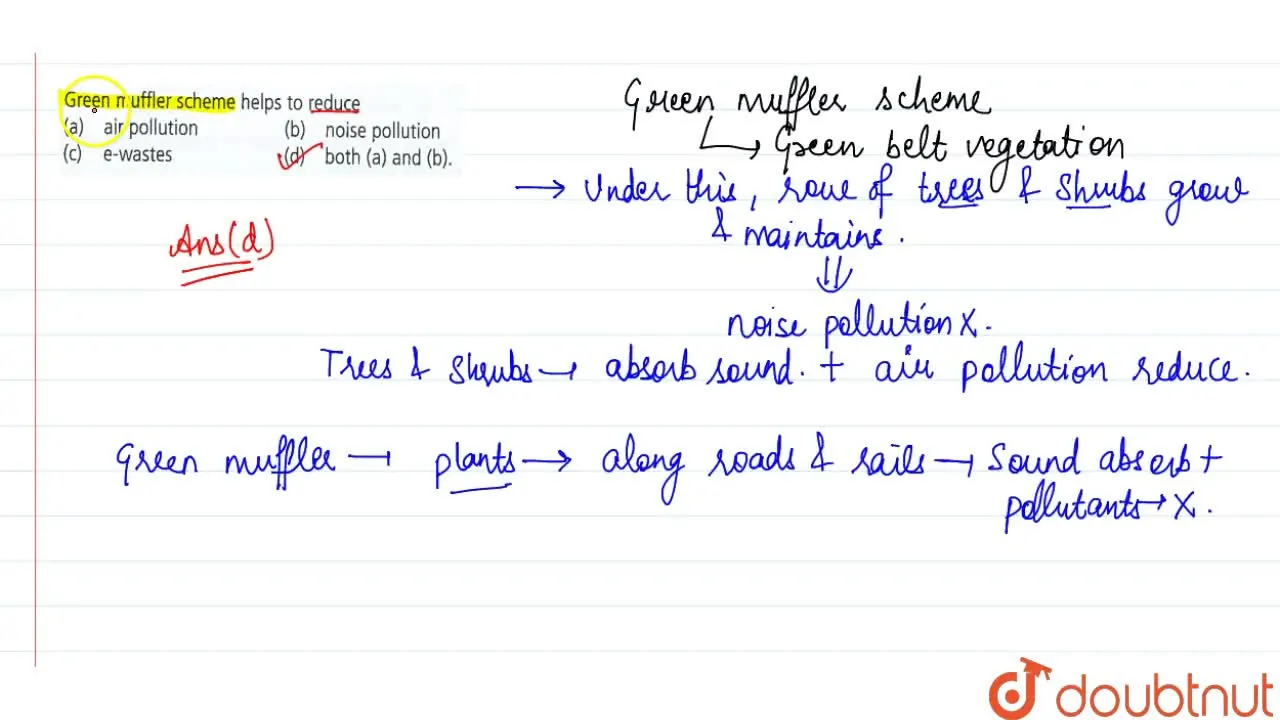 Green muffler scheme helps to reduce
(a) air pollution (b) noise pollution
(c) e-wastes (d) both (a) and (b).
Ans (d)
Green muffler scheme
↳ Green belt vegetation
→ Under this, rowe of trees & shrubs grow
& maintains.
⇓
noise pollution X.
Trees & Shrubs → absorb sound. + air pollution reduce.
Green muffler → plants → along roads & rails → Sound absorb +
pollutants → X.
doubtnut